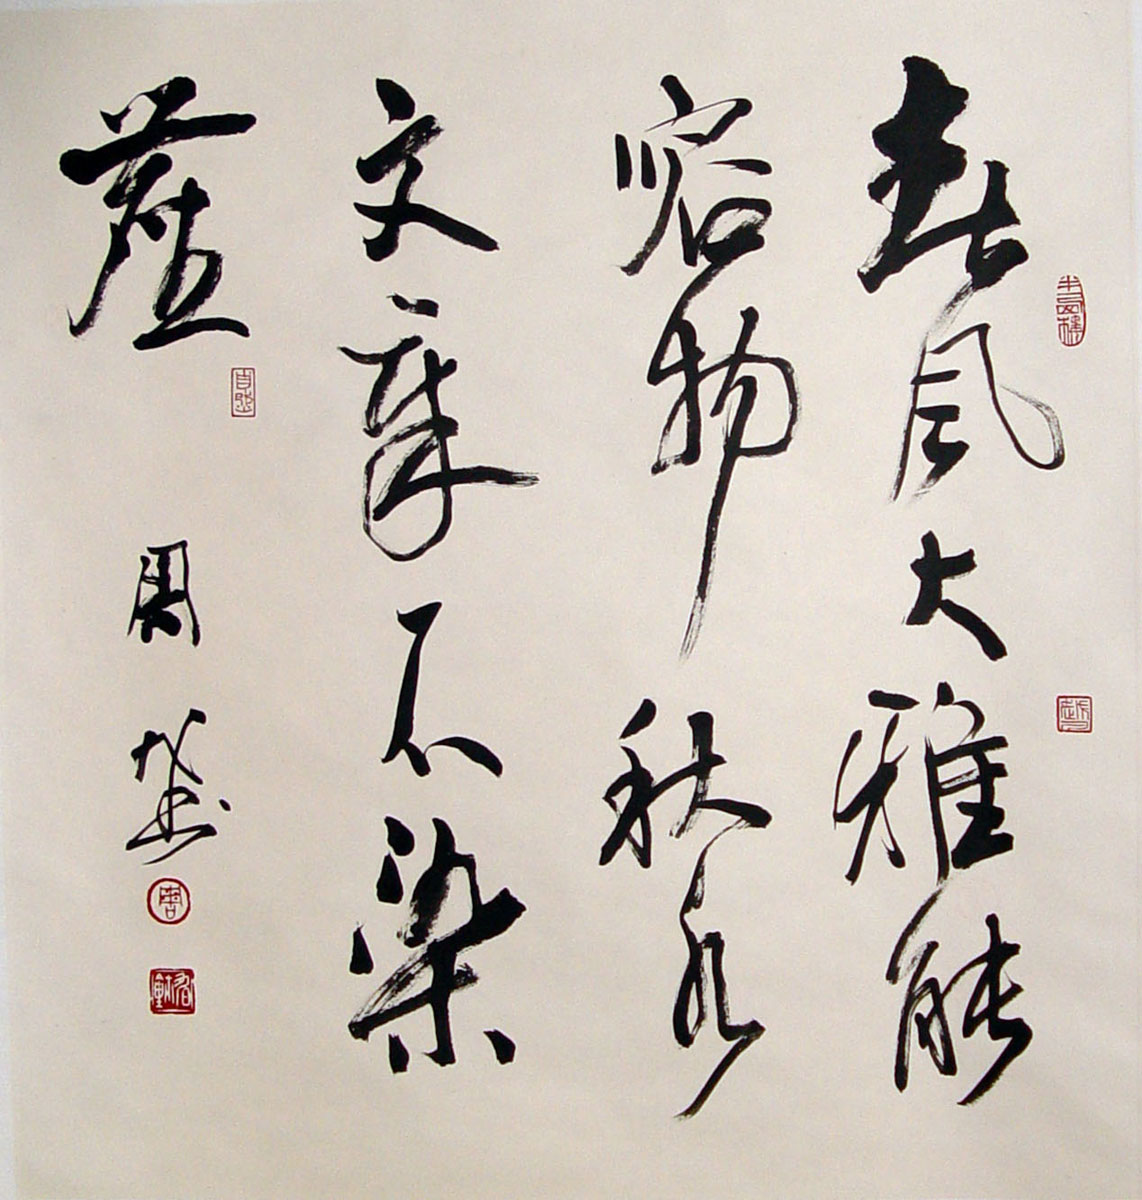 春風大雅能
容物秋水
文章不染
塵
周